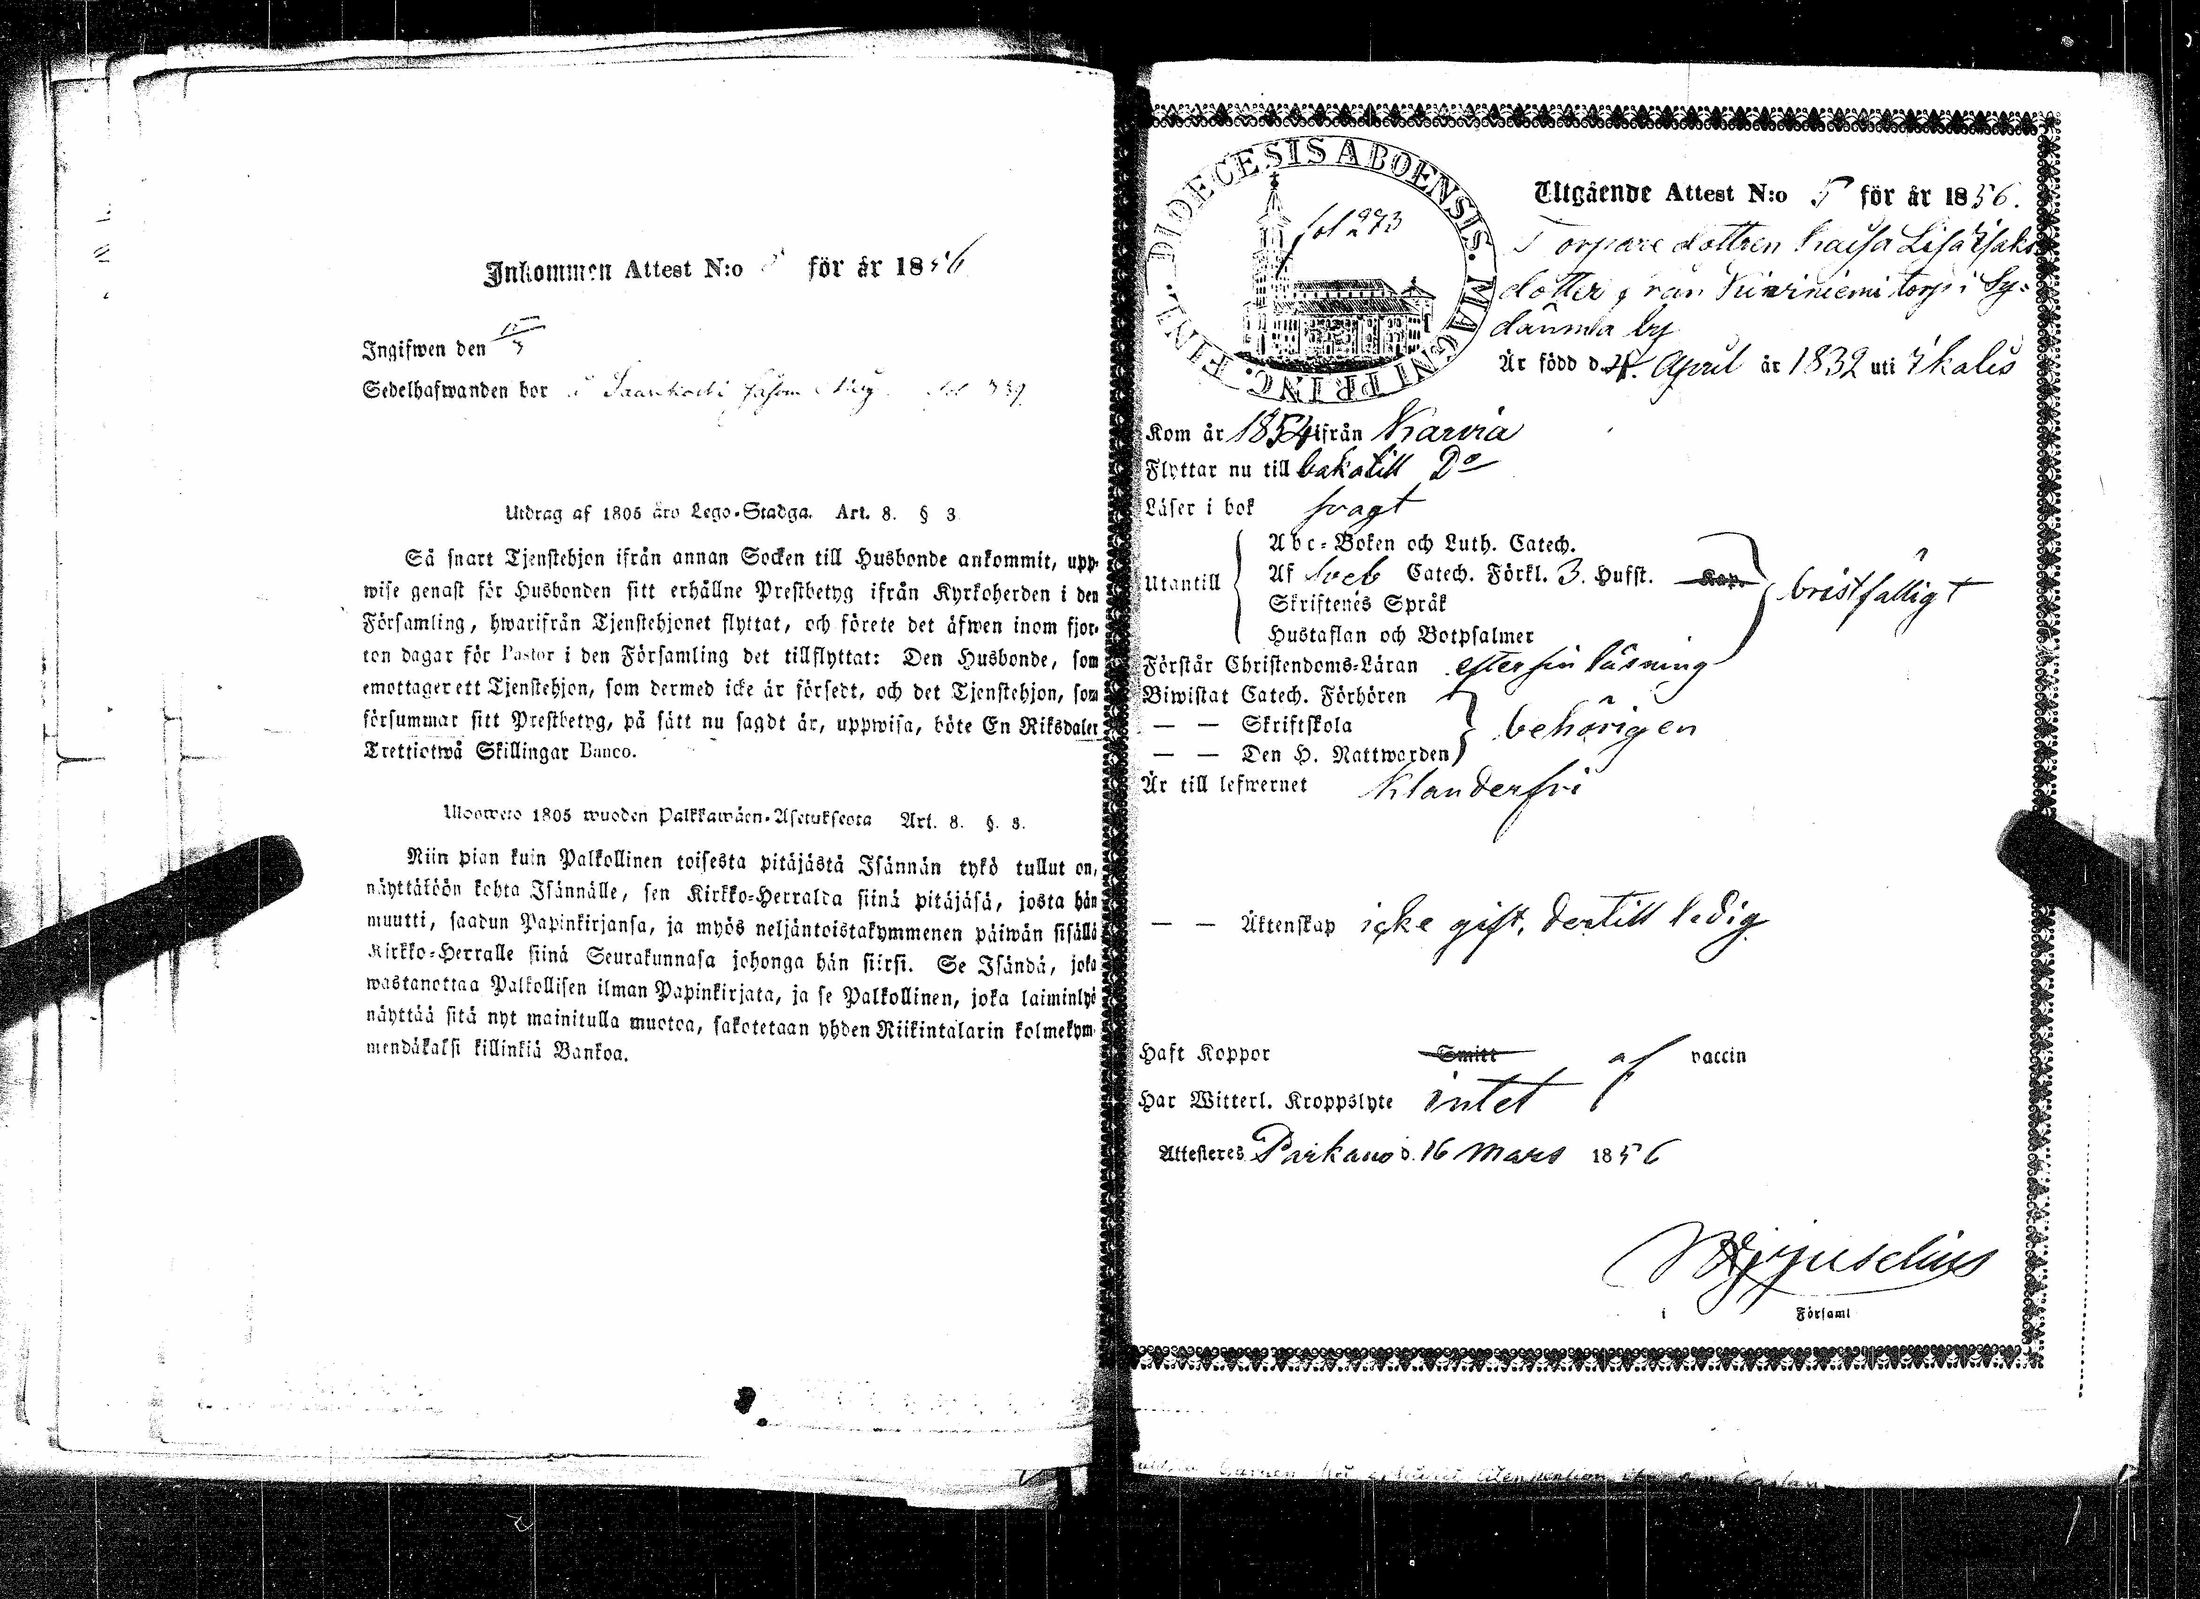 Inkommen Attest N:o 5 för år 1856
Ingifwen den
Sedelhafwanden bor
Utdrag af 1805 års Lego-Stadga. Art. 8. § 3
Så snart Tjenstehjon ifrån annan Socken till Husbonde ankommit, upp-
wise genast för Husbonden sitt erhållne Prestbetyg ifrån Kyrkoherden i den
Församling, hwarifrån Tjenstehjonet flyttat, och förete det äfwen inom fjor-
ton dagar för Pastor i den Församling det tillflyttat: Den Husbonde, som
emottager ett Tjenstehjon, som dermed icke är försedt, och det Tjenstehjon, som
försummar sitt Prestbetyg, på sätt nu sagdt är, uppwisa, böte En Riksdaler
Trettiotwå Skillingar Banco.
Uloswedo 1805 wuoden Palkkawäen-Asetuksesta Art. 8. §. 3.
Niin pian kuin Palkollinen toisesta pitäjästä Isännän tykö tullut on,
näyttäköön kohta Isännälle, sen Kirkko-Herralda siinä pitäjäsä, josta hän
muutti, saadun Papinkirjansa, ja myös neljäntoistakymmenen päiwän sisällä
Kirkko-Herralle siinä Seurakunnasa johonga hän siirsi. Se Isändä, joka
wastanottaa Palkollisen ilman Papinkirjata, ja se Palkollinen, joka laiminlyö
näyttää sitä nyt mainitulla muotoa, sakotetaan yhden Riikintalarin kolmekym-
mendäkaksi killinkiä Bankoa.
DIOECESIS ABOENSIS. MAGNI PRINC. FINL.
fol 273
Utgående Attest N:o 5 för år 1856.
Torpare dottren Kaisa Lisa Isaks
dotter från Kiviniemi torp i Sy-
dänmaa by
Är född d. 4. April år 1832 uti Ikalis
Kom år 1854 ifrån Karvia
Flyttar nu till bakatill Do
Läser i bok svagt
Utantill
Abc-Boken och Luth. Catech.
Af Sveb Catech. Förkl. 3. Hufst. Kap.
Skriftenes Språk
Hustaflan och Botpsalmer
bristfälligt
Förstår Christendoms-Läran efter sin läsning
Biwistat Catech. Förhören
— — Skriftskola
— — Den H. Nattwarden
behörigen
Är till lefwernet Klanderfri
— — Äktenskap icke gift, dertill ledig
Haft Koppor Smitt af vaccin
Har Witterl. Kroppslyte intet
Attesteres Parkano d. 16 Mars 1856
i Församl